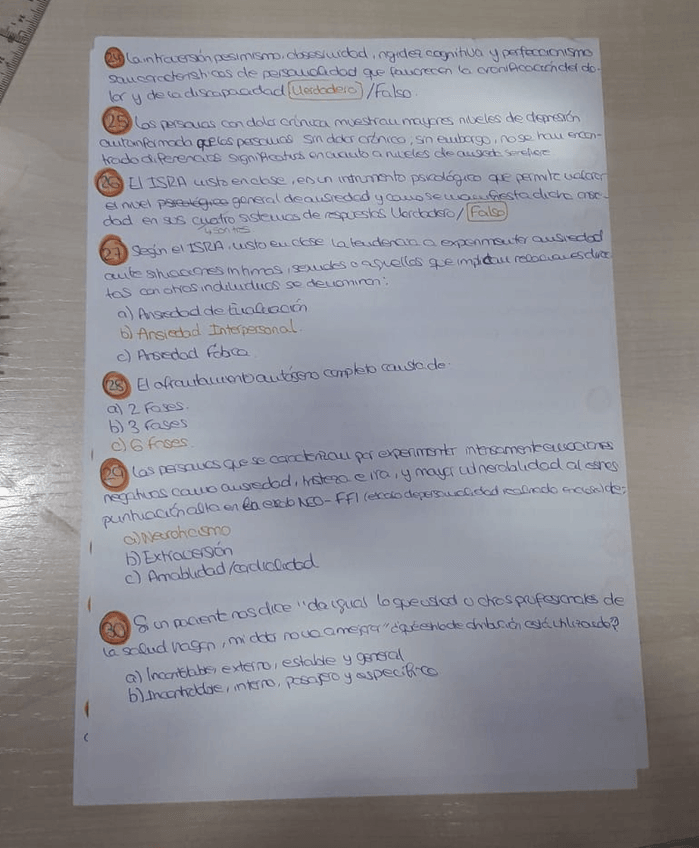 24 La introversión, pesimismo, obsesividad, rigidez cognitiva y perfeccionismo
son características de personalidad que favorecen la cronificación del do-
lor y de la discapacidad Verdadero /Falso.
25 Las personas con dolor crónico muestran mayores niveles de depresión
autoinformada que las personas sin dolor crónico, sin embargo, no se han encon-
trado diferencias significativas en cuanto a niveles de ansiedad
26 El ISRA visto en clase, es un instrumento psicológico que permite valorar
el nivel general de ansiedad y como se manifiesta dicha ansie-
dad en sus cuatro sistemas de respuestas Verdadero/ Falso
27 Según el ISRA, visto en clase la tendencia a experimentar ansiedad
ante situaciones íntimas, sexuales o aquellas que implican relaciones direc-
tas con otros individuos se denominan:
a) Ansiedad de Evaluación
b) Ansiedad Interpersonal.
c) Ansiedad Fóbica
28 El afrontamiento autógeno completo consta de:
a) 2 Fases.
b) 3 Fases
c) 6 fases.
29 Las personas que se caracterizan por experimentar intensamente emociones
negativas como ansiedad, tristeza e ira, y mayor vulnerabilidad al estrés
puntuación alta en la escala NEO-FFI (escala de personalidad realizado en clase) de:
a) Neuroticismo
b) Extraversión
c) Amabilidad/cordialidad
30 Si un paciente nos dice "da igual lo que usted u otros profesionales de
la salud hagan, mi dolor no va a mejorar" ¿qué estilo de atribución está utilizando?
a) Incontrolable, externo, estable y general
b) Incontrolable, interno, pasajero y específico